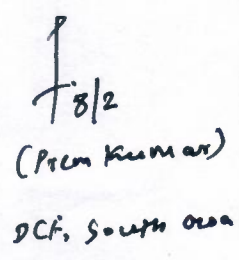 8/2
(Prem Kumar)
DCF, South